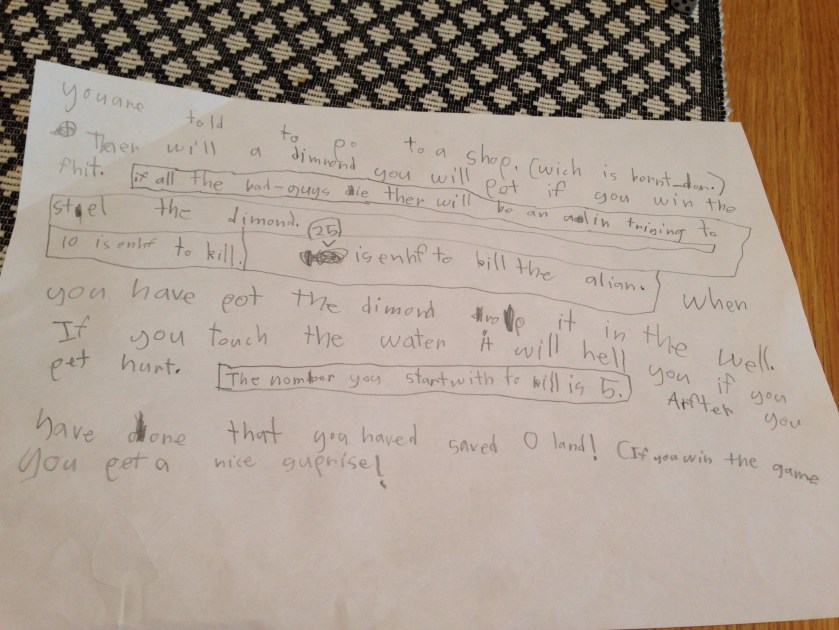 you are told to go to a shop. (wich is bornt_don.)
Ther will a dimond you will get if you win the
fhit. if all the bad-guys die ther will be an alin trining to
stel the dimond.
10 is enhf to kill. 25 is enhf to kill the alian. When
you have got the dimond drop it in the well.
If you touch the water it will hell you if you
get hurt. The nomber you start with to kill is 5. Arfter you
have done that you haved saved O land! (If you win the game
You get a nice suprise!